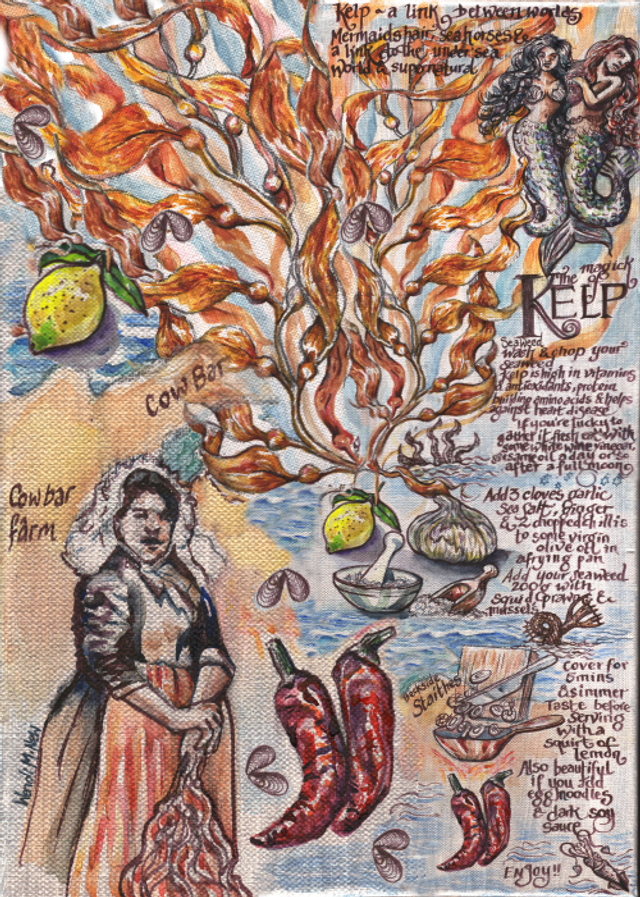 Kelp ~ a link between worlds
Mermaids hair, sea horses &
a link to the under sea
World & supernatural
The magick
of
KELP
Seaweed
Wash & chop your
seaweed
Kelp is high in vitamins
& antioxidants, protein
building amino acids & helps
against heart disease
If you're lucky to
gather it fresh eat with
some white wine vinegar,
sesame oil a day or so
after a full moon
Cow Bar
Cowbar
farm
Add 3 cloves garlic
Sea salt, ginger
& 2 chopped chillis
to some virgin
olive oil in
a frying pan
Add your seaweed
200g with
squid, prawns &
mussels
Staithes
cover for
5 mins
& simmer
Taste before
serving
with a
squirt of
lemon
Also beautiful
if you add
egg noodles
& dark soy
sauce
ENJOY!!